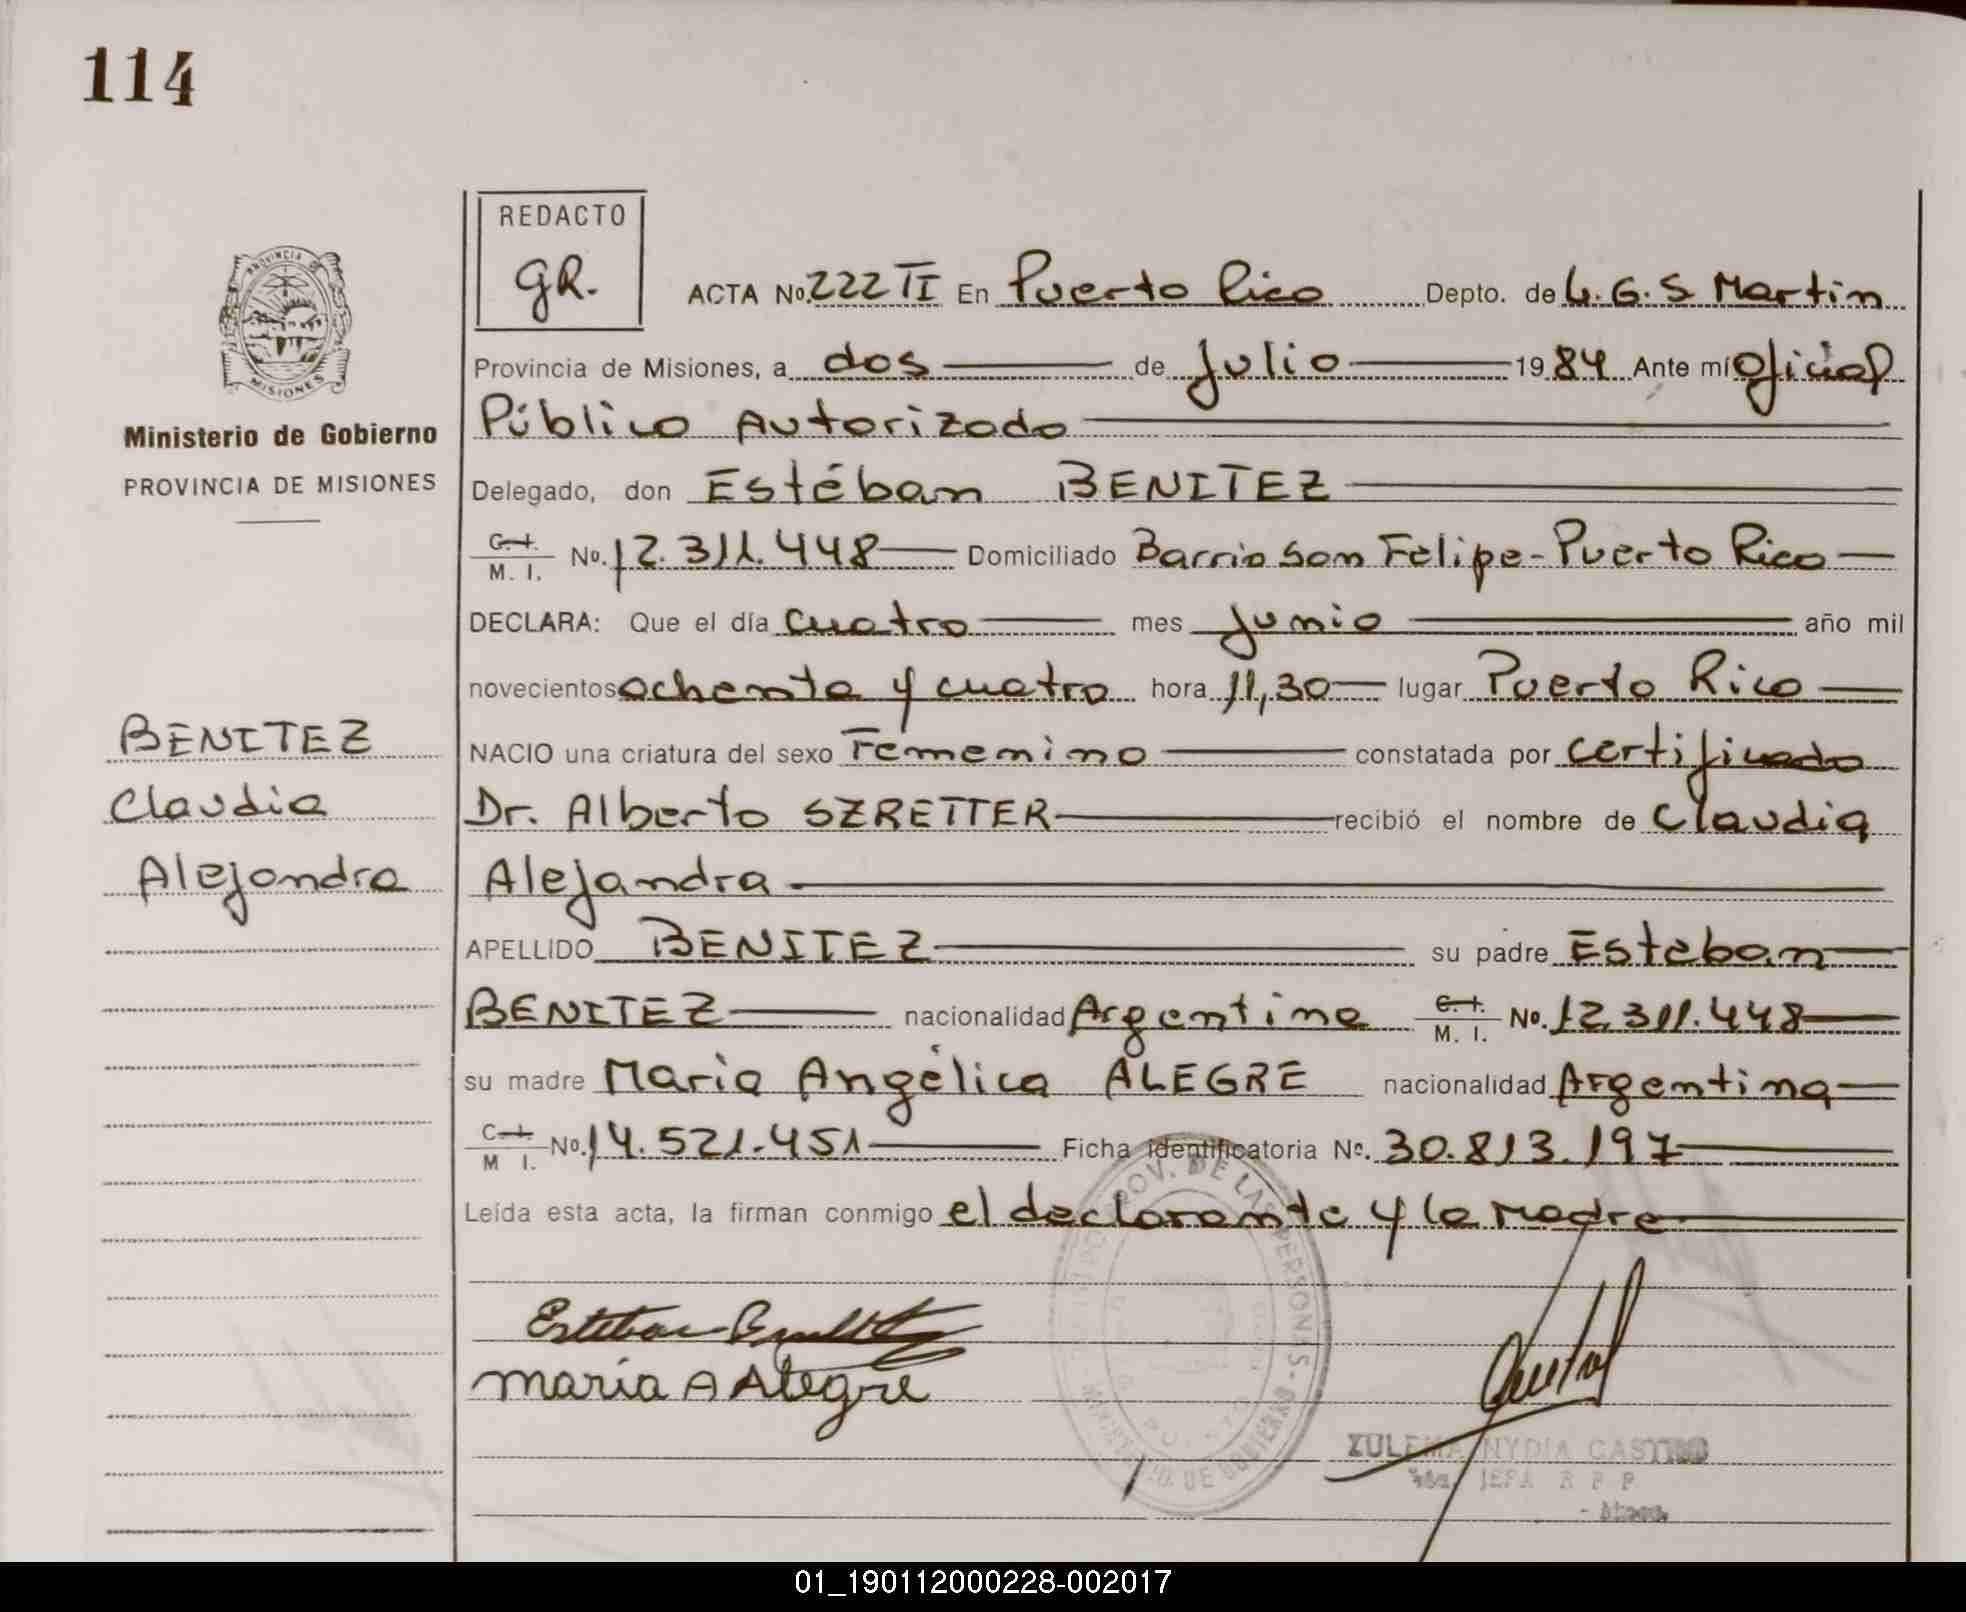 114
REDACTO
GR.
PROVINCIA DE
MISIONES
Ministerio de Gobierno
PROVINCIA DE MISIONES
ACTA No. 222 II En Puerto Rico Depto. de L. G. S Martin
Provincia de Misiones, a dos de Julio 1984 Ante mí Oficial
Público Autorizado
Delegado, don Estéban BENITEZ
C. I. M. I. No. 12.311.448 Domiciliado Barrio San Felipe - Puerto Rico
DECLARA: Que el día cuatro mes Junio año mil
novecientos ochenta y cuatro hora 11,30 lugar Puerto Rico
NACIO una criatura del sexo Femenino constatada por certificado
Dr. Alberto SZRETTER recibió el nombre de Claudia
Alejandra
APELLIDO BENITEZ su padre Esteban
BENITEZ nacionalidad Argentina C. I. M. I. No. 12.311.448
su madre Maria Angélica ALEGRE nacionalidad Argentina
C. I. M I. No. 14.521.451 Ficha identificatoria No. 30.813.197
Leída esta acta, la firman conmigo el declarante y la Madre
BENITEZ
Claudia
Alejandra
Esteban
maria A Alegre
PROV. DE LAS PERSONAS - MINISTERIO DE GOBIERNO
ZULEMA NYDIA CASTRO
JEFA R P P
01_190112000228-002017